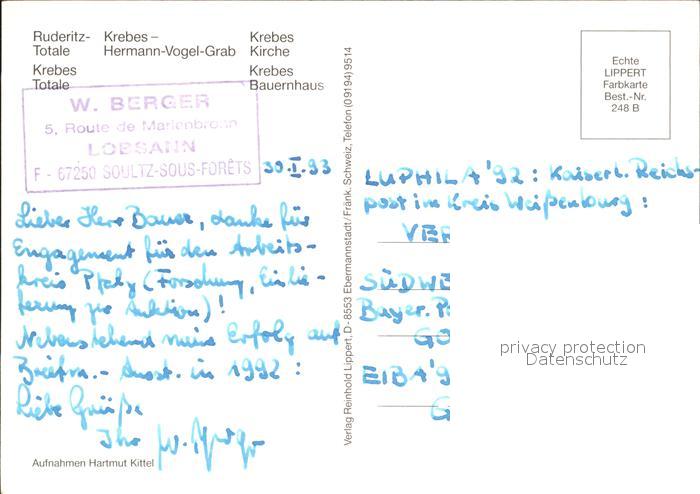 Ruderitz-
Totale
Krebes –
Hermann-Vogel-Grab
Krebes
Kirche
Krebes
Totale
Krebes
Bauernhaus
W. BERGER
5, Route de Marienbronn
LOBSANN
F - 67250 SOULTZ-SOUS-FORÊTS
30.I.93
Lieber Herr Bauer, danke für
Engagement für den Arbeits-
kreis Pfalz (Forschung, Einlie-
ferung zur Auktion)!
Nebenstehend meine Erfolg auf
Briefm.- Ausst. in 1992 :
Liebe Grüße
Ihr W. Berger
Aufnahmen Hartmut Kittel
Verlag Reinhold Lippert, D - 8553 Ebermannstadt / Fränk. Schweiz, Telefon (09194) 9514
Echte
LIPPERT
Farbkarte
Best.-Nr.
248 B
LUPHILA '92 : Kaiserl. Reichs-
post im Kreis Weißenburg :
VER
SÜDWE
Bayer. P
GO
EIBA '9
G
privacy protection
Datenschutz